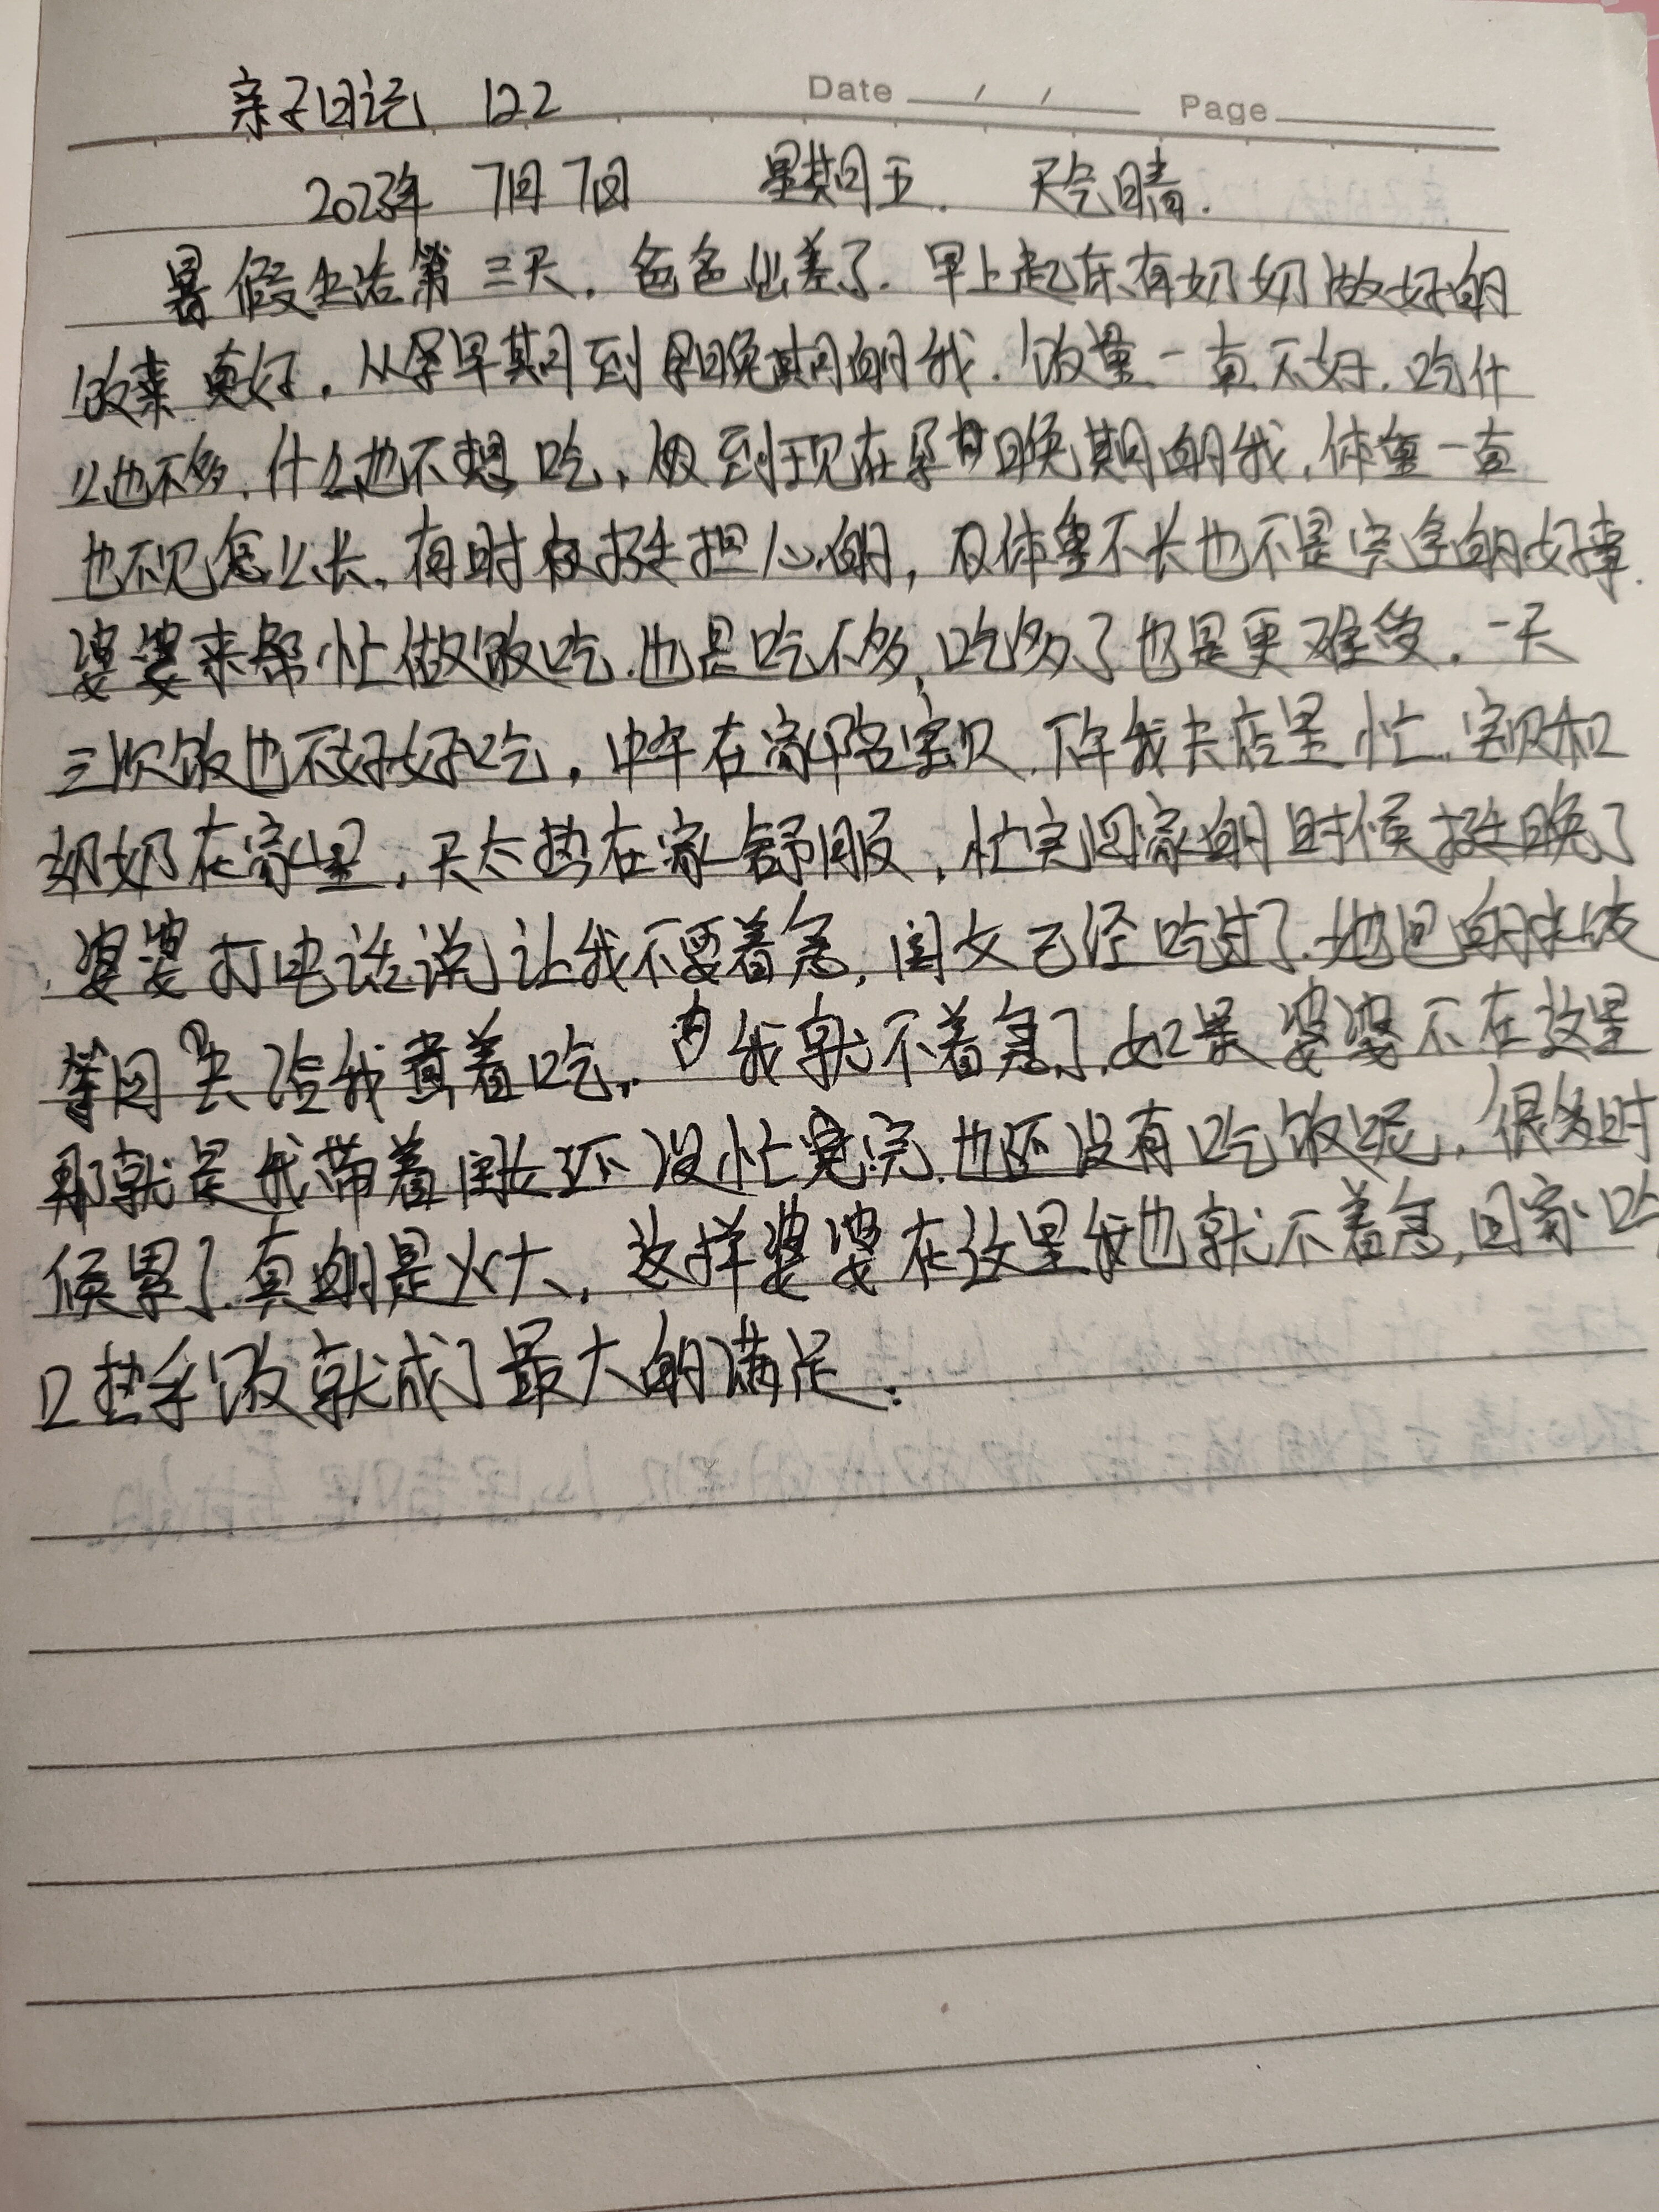 亲子日记 122 Date / / Page
2023年 7月7日 星期五. 天气晴.
暑假生活第三天, 爸爸出差了. 早上起床有奶奶做好的
饭菜真好, 从孕早期到孕晚期的我. 饭量一直不好. 吃什
么也不多, 什么也不想吃, 但到现在孕晚期的我, 体重一直
也不见怎么长, 有时候挺担心的, 但体重不长也不是完全的好事.
婆婆来帮忙做饭吃. 也是吃不多, 吃多了也是更难受. 一天
三顿饭也不好好吃, 中午在家陪宝贝, 下午我去店里忙, 宝贝和
奶奶在家里, 天太热在家舒服, 忙完回家的时候挺晚了
婆婆打电话说让我不要着急, 闺女已经吃过了. 地包的水饺
等回去给我煮着吃. 我就不着急了, 如果婆婆不在这里
那就是我带着闺女还没忙完. 也还没有吃饭呢, 很多时
候累了真的是火大, 这样婆婆在这里我也就不着急, 回家吃
口热乎饭就成了最大的满足.